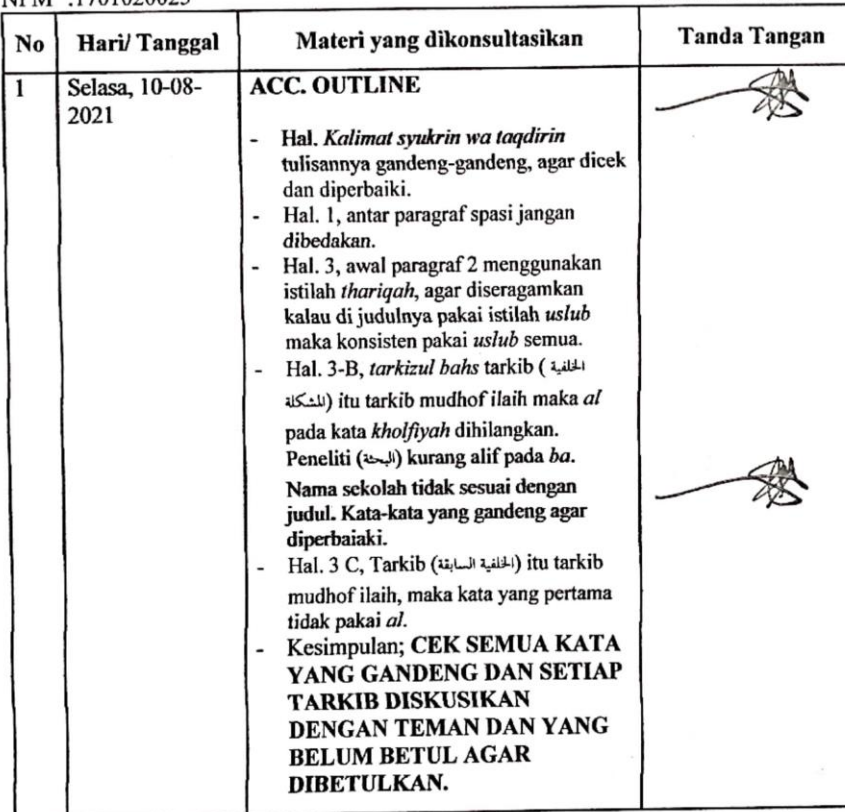 NPM :1701020025
No Hari/ Tanggal Materi yang dikonsultasikan Tanda Tangan
1 Selasa, 10-08-
2021
ACC. OUTLINE
- Hal. Kalimat syukrin wa taqdirin
tulisannya gandeng-gandeng, agar dicek
dan diperbaiki.
- Hal. 1, antar paragraf spasi jangan
dibedakan.
- Hal. 3, awal paragraf 2 menggunakan
istilah thariqah, agar diseragamkan
kalau di judulnya pakai istilah uslub
maka konsisten pakai uslub semua.
- Hal. 3-B, tarkizul bahs tarkib ( الخلفية
المشكلة) itu tarkib mudhof ilaih maka al
pada kata kholfiyah dihilangkan.
Peneliti (البحثة) kurang alif pada ba.
Nama sekolah tidak sesuai dengan
judul. Kata-kata yang gandeng agar
diperbaiaki.
- Hal. 3 C, Tarkib (الخلفية السابقة) itu tarkib
mudhof ilaih, maka kata yang pertama
tidak pakai al.
- Kesimpulan; CEK SEMUA KATA
YANG GANDENG DAN SETIAP
TARKIB DISKUSIKAN
DENGAN TEMAN DAN YANG
BELUM BETUL AGAR
DIBETULKAN.